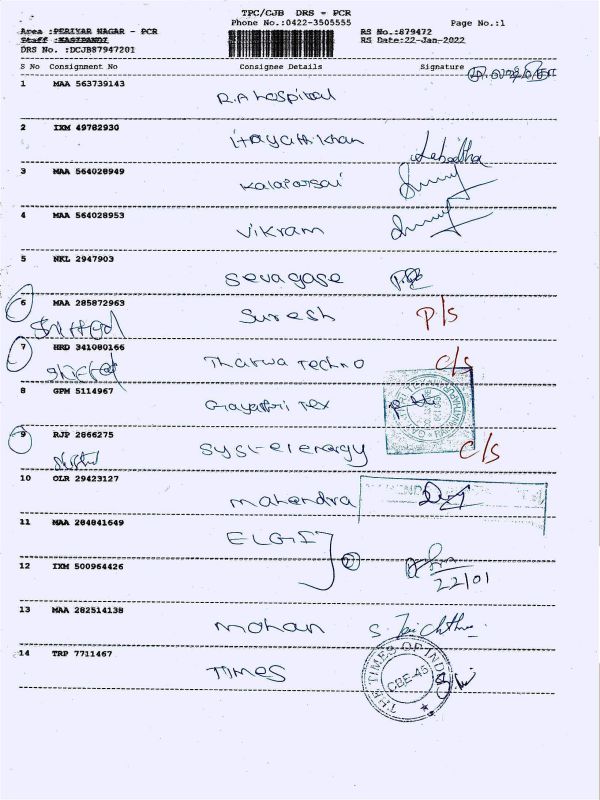 TPC/CJB DRS - PCR
Phone No.:0422-3505555
Page No.:1
Area :PERIYAR NAGAR - PCR
RS No.:879472
Staff :KASIPANDI
RS Date:22-Jan-2022
DRS No. :DCJB87947201
S No Consignment No Consignee Details Signature
1 MAA 563739143
R.A Hospital
2 IXM 49782930
itayathkhan
3 MAA 564028949
Kalaiarsai
4 MAA 564028953
Vikram
5 NKL 2947903
Sevagase
6 MAA 285872963
Suresh P/S
Shifted
7 HRD 341080166
Tharwa Techno C/S
Shifted
8 GPM 5114967
Gayathri Tex
9 RJP 2866275
C/S
10 OLR 29423127
Mahendra
11 MAA 284841649
ELGI
2
12 IXM 500964426
22/01
13 MAA 282514138
Mohan
14 TRP 7711467
TIMES
THE TIMES OF INDIA
CBE-45